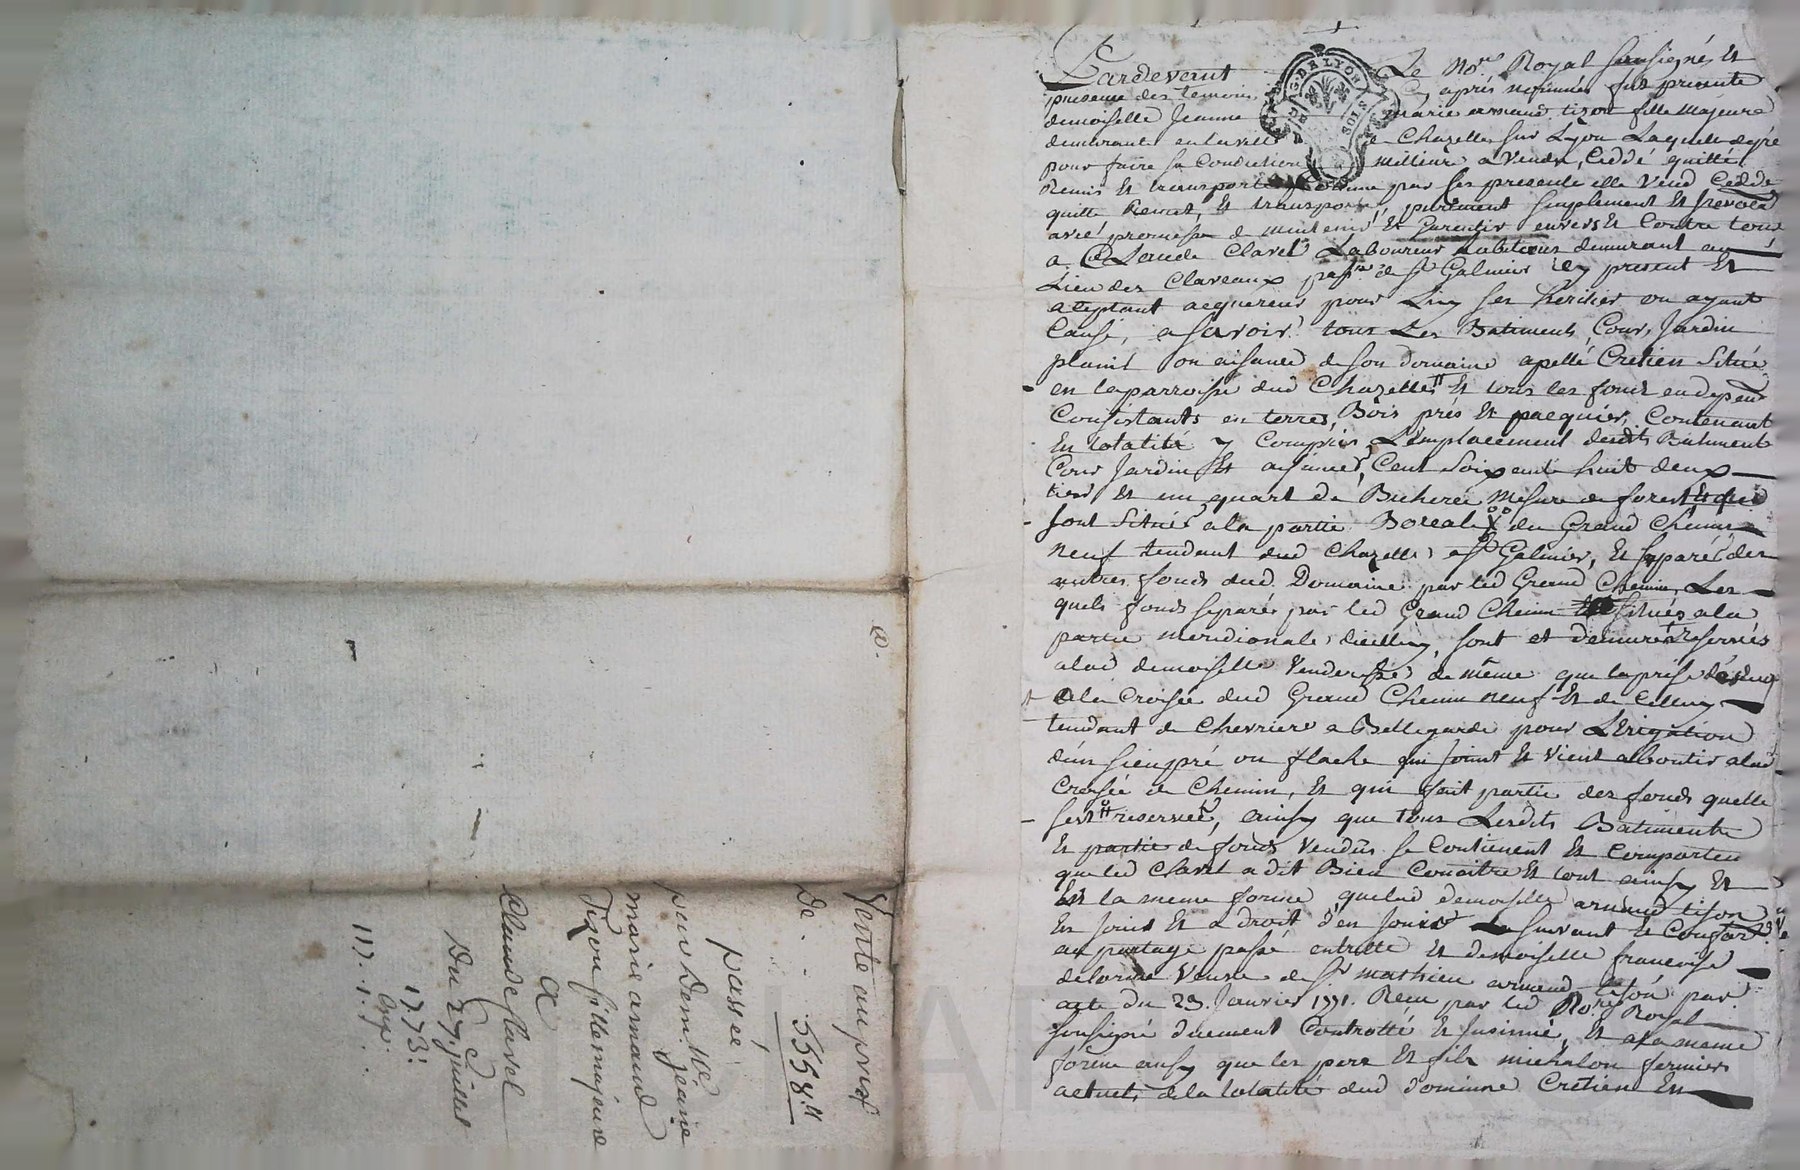 Pardevant Le No.re Royal Sousignés Et
presence des temoins Cy aprés nommés fut presente
demoiselle Jeanne marie armand tizon fille Majeure
demeurante en la ville de Chazelles sur Lyon Laquelle de gré
pour faire sa Condition milleure a Vendu, Ceddé quitté
Remis Et transporté Comme par ses presente elle Vend Cedde
quitte Remet, Et transporte purement simplement Et
avec promesse de maintenir Et Garentir envers Et Contre tous
a Claude Clavel Laboureur habitans demeurant au
Lieu des Claveaux par.sse de St Galmier icy present Et
aceptant acquereur pour Luy ses heritier ou ayant
Cause, a savoir tous Les Batiments, Cour, Jardin
plassit ou aisance de son domaine apellé Cretien Situé
en la parroisse dud Chazelles Et tous les fonds en depend
Consistants en terres, Bois prés Et pacquier, Contenant
En totalité y Compris L'emplacement desdits Batiment
Cour Jardin Et aisance, Cent Soixante huit deux
tiers Et un quart de Bicherée Mesure de forest Et qui
sont Situés a la partie Boreale du Grand Chemin
neuf tendant dud Chazelles a St Galmier, Et separé des
autres fonds dud Domaine par led Grand Chemin, Les
quels fonds separés par led Grand Chemin Situés a la
partie meridionale d'icelluy, sont et demeurés reservés
a lad demoiselle Venderesse de même que la prise d'eau
de la Croisée dud Grand Chemin neuf Et de Celluy
tendant de Chevriere a Bellegarde pour L'Erigation
d'un sien pré ou flache qui joint Et Vient aboutir a lad
Croisée de Chemin, Et qui fait partie des fonds quelle
sest reservée, ainsy que tous Lesdits Batiments
Et partie de fonds Vendus se Contienent Et Comportent
que led Clavel a dit Bien Conoitre Et tout ainsy Et
En la meme forme que lad demoiselle armand tison
En Jouit Et a droit d'en Jouir suivant Et Conformé
au partage passé entrelle Et demoiselle francoise
delorme Veuve de Sr mathieu armand tison par
acte du 23. Janvier 1771. Reçu par led No.re Royal
sousigné duement Controllé Et Insinué, Et a la meme
forme ausy que les pere Et fils michalon fermiers
actuels de la totalité dud domaine Cretien En
@.
Vente au prix
De - - 5558.ll
passée
par Dem.lle Jeanne
marie armand
Tizon fille majeure
a
Claude Clavel
Du 27. Juillet
1773:
117. 1. 1.
GAB. DE LYON